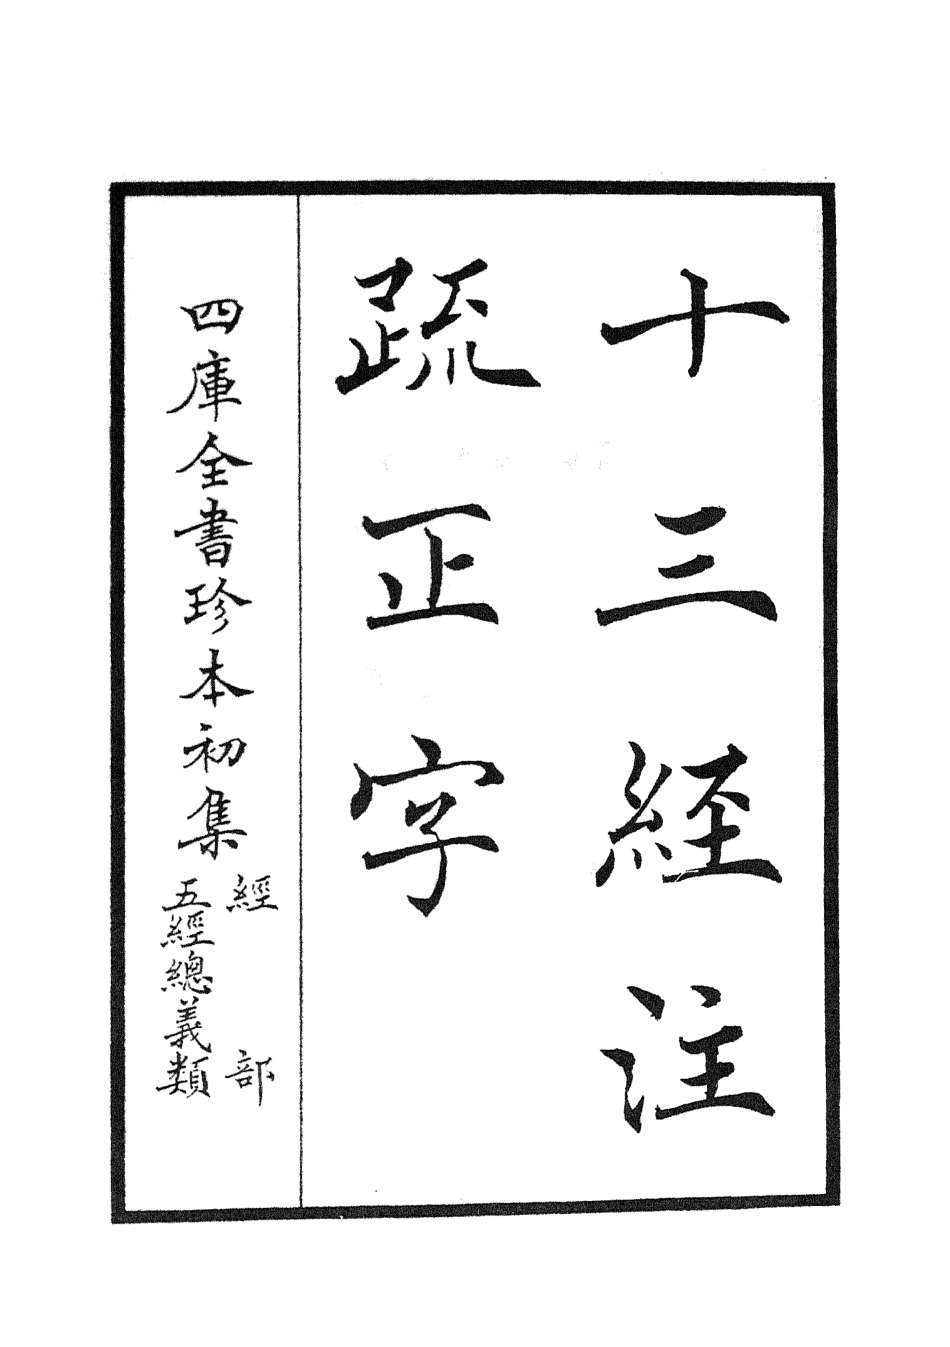 十三経注
疏正字
四庫全書珍本初集
經部
五經總義類